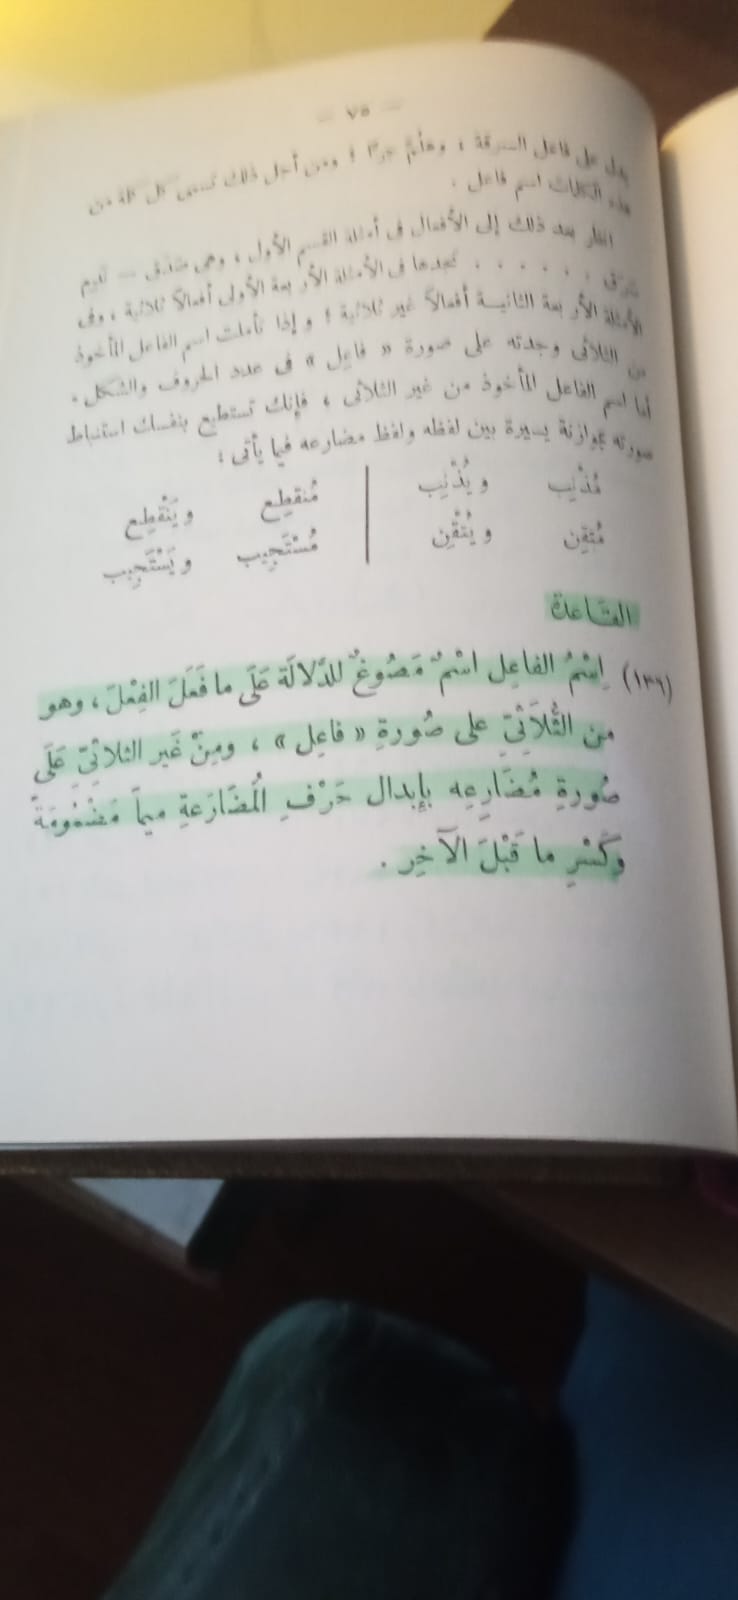 — ٧٥ —
يدل على فاعل السرقة ، وهلم جرا ؛ ومن أجل ذلك تسمى كل كلمة من
هذه الكلمات اسم فاعل .
انظر بعد ذلك إلى الأفعال فى أمثلة القسم الأول ، وهى
. . . . . . تجدها فى الأمثلة الأربعة الأولى أفعالاً ثلاثية ، وفى
الأمثلة الأربعة الثانية أفعالاً غير ثلاثية ؛ وإذا تأملت اسم الفاعل المأخوذ
من الثلاثى وجدته على صورة « فاعل » فى عدد الحروف والشكل .
أما اسم الفاعل المأخوذ من غير الثلاثى ، فإنك تستطيع بنفسك استنباط
صورته بموازنة يسيرة بين لفظه ولفظ مضارعه فيما يأتى :
مُذْنِب ويُذْنِب | مُنقطِع ويَنْقطِع
مُتقِن ويُتْقِن | مُسْتَجِيب ويَسْتَجِيب
القاعدة
(١٣٦) اِسْمُ الفاعِل اسْمٌ مَصُوغٌ للدَّلالَة عَلَى ما فَعَلَ الفِعْلَ ، وهو
من الثُّلاَثِيِّ على صُورةِ « فاعِل » ، ومِنْ غَير الثلاثِيِّ عَلَى
صُورةِ مُضَارِعِه بإبدال حَرْفِ المُضَارَعةِ ميماً مَضْمُومَةً
وكَسْرِ ما قَبْلَ الآخِر .